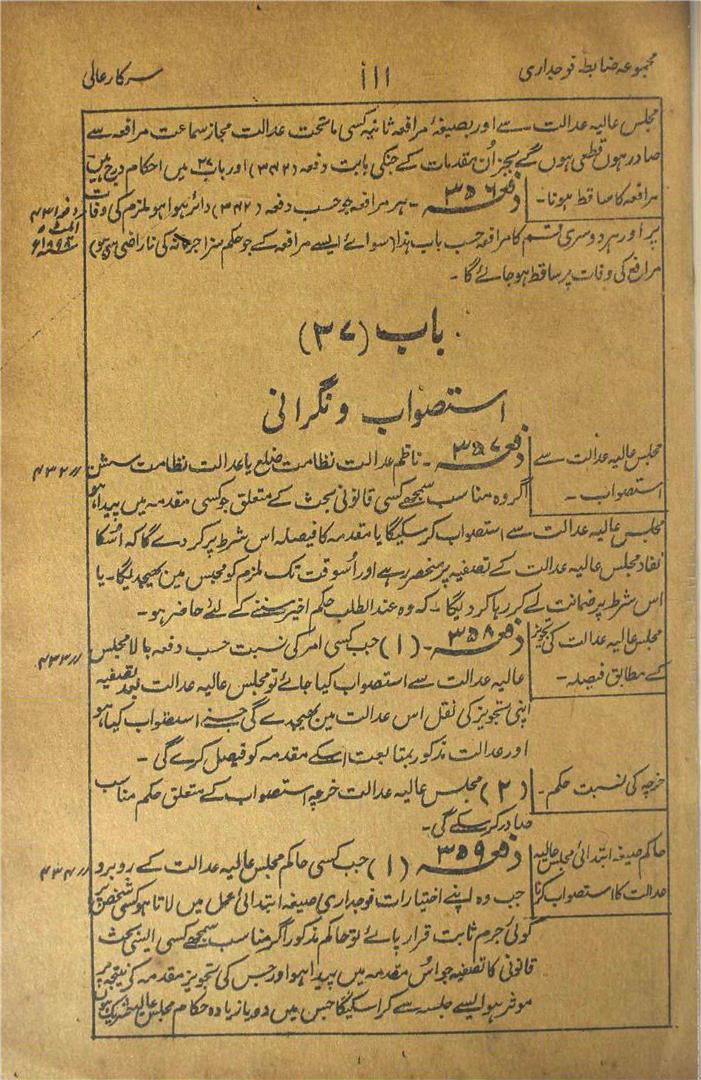 مجموعہ ضابطہ فوجداری
۱۱۱
سرکار عالی
مجلس عالیہ عدالت سے اور بصیغۂ مرافعہ ثانیہ کسی ماتحت عدالت مجاز سماعت مرافعہ سے
صادر ہوں قطعی ہوں گے بجز اُن مقدمات کے جنکی بابت دفعہ (۳۴۲) اور باب ۳۷ میں احکام درج ہیں
مرافعہ کا ساقط ہونا۔
دفعہ ۳۵۶ ۔ ہر مرافعہ جو حسب دفعہ (۳۴۲) دائر ہوا ہو ملزم کی وفات
دفعہ ۴۳۱
ایکٹ ۵
۱۸۹۸ء
پر اور ہر دوسری قسم کا مرافعہ حسب باب ہذا (سوائے ایسے مرافعہ کے جو حکم سزا جرمانہ کی ناراضی سے ہو)
مرافع کی وفات پر ساقط ہو جائے گا ۔
باب (۳۷)
استصواب و نگرانی
مجلس عالیہ عدالت سے
استصواب ۔
دفعہ ۳۵۷ ۔ ناظم عدالت نظامت ضلع یا عدالت نظامت سشن
〃 ۴۳۲
اگر وہ مناسب سمجھے کسی قانونی بحث کے متعلق جو کسی مقدمہ میں پیدا ہو
مجلس عالیہ عدالت سے استصواب کر سکیگا یا مقدمہ کا فیصلہ اس شرط پر کر دے گا کہ اُسکا
نفاذ مجلس عالیہ عدالت کے تصفیہ پر منحصر رہے اور اُسوقت تک ملزم کو محبس میں بھیجدیگا ۔ یا
اس شرط پر ضمانت لے کر رہا کر دیگا ۔ کہ وہ عندالطلب حکم اخیر سننے کے لئے حاضر ہو ۔
مجلس عالیہ عدالت کی تجویز
کے مطابق فیصلہ ۔
دفعہ ۳۵۸ ۔ (۱) جب کسی امر کی نسبت حسب دفعہ بالا مجلس
〃 ۴۳۳
عالیہ عدالت سے استصواب کیا جائے تو مجلس عالیہ عدالت بعد تصفیہ
اپنی تجویز کی نقل اس عدالت میں بھیجدے گی جسنے استصواب کیا ہو
اور عدالت مذکور بمتابعت اسکے مقدمہ کو فیصل کرے گی ۔
خرچہ کی نسبت حکم ۔
(۲) مجلس عالیہ عدالت خرچہ استصواب کے متعلق حکم مناسب
صادر کر سکے گی ۔
حاکم صیغہ ابتدائی مجلس عالیہ
عدالت کا استصواب کرنا
دفعہ ۳۵۹ (۱) جب کسی حاکم مجلس عالیہ عدالت کے روبرو
〃 ۴۳۴
جب وہ اپنے اختیارات فوجداری صیغہ ابتدائی عمل میں لاتا ہو کسی شخص پر
کوئی جرم ثابت قرار پائے تو حاکم مذکور اگر مناسب سمجھے کسی ایسی بحث
قانونی کا تصفیہ جو اُس مقدمہ میں پیدا ہو اور جس کی تجویز مقدمہ کے نتیجہ پر
موثر ہو ایسے جلسہ سے کرا سکیگا جس میں دو یا زیادہ حکام مجلس عالیہ شریک ہوں